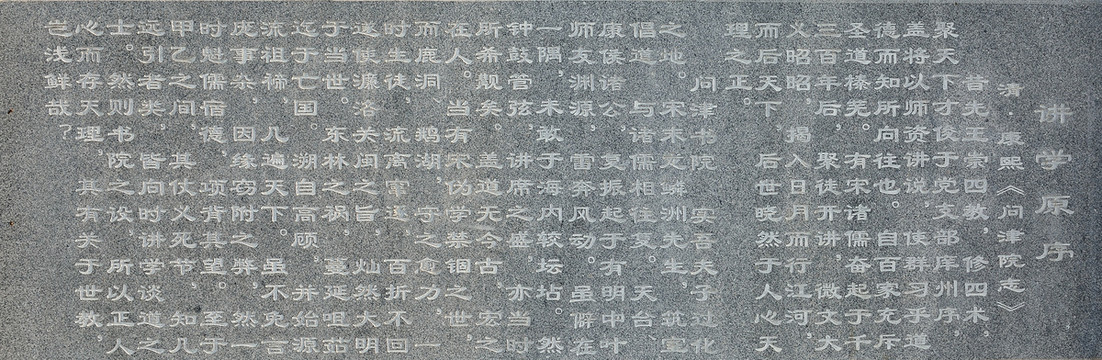 讲学原序
清·康熙《问津院志》
昔先王崇四教，修四术，
聚天下才俊于党支部庠州序，
盖将以师资讲说，使群习乎道
德而知所向往也。自百家充斥，
圣道榛芜。有宋诸儒奋起于千
三百年后，聚徒开讲，微文大
义昭昭，揭入日月而行江河，
而后天下后世晓然于人心天
理之正。
问津书院，实吾夫子过化
之地。宋末龙麟洲先生，筑室
倡道，与诸儒相往复。天台、
康侯诸公，复振起于有明中叶，
师友渊源，雷奔风动。虽僻在
一隅，未敢于海内较坛坫。然
钟鼓管弦，讲席之盛，亦当时
所希觏矣。盖道无今古，宏之
在人。当有宋伪学禁锢之世，
而鹿洞、鹅湖，守之愈力，一
时生徒，流离窜逐，百折不回，
遂使濂洛关闽之旨，灿然大明
于当世。东林之祸，蔓延咀
迄于亡国。溯自高顾，并始源
流祖祢，几遍天下。虽不免言
庞事杂，因缘窃附之弊，然一
时魁儒宿德，项背其望。至于
甲乙之间，其仗义死节，知几
远引者类，皆向时讲学谈道之
士。然则书院之设，所以正人
心而存天理，其有关于世教，
岂浅鲜哉？